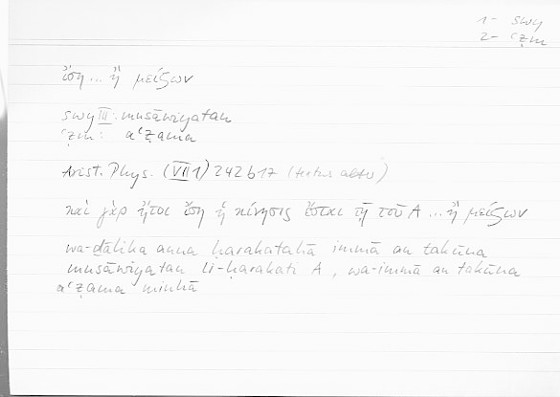 1- swy
2- ʿẓm
ἴση ... ἢ μείζων
swy III: musāwiyatan
ʿẓm: aʿẓama
Arist. Phys. (VII 1) 242b17 (textus alter)
καὶ γὰρ ἤτοι ἴση ἡ κίνησις ἔσται τῇ τοῦ A ... ἢ μείζων
wa-ḏālika anna ḥarakatahā immā an takūna
musāwiyatan li-ḥarakati A, wa-immā an takūna
aʿẓama minhā